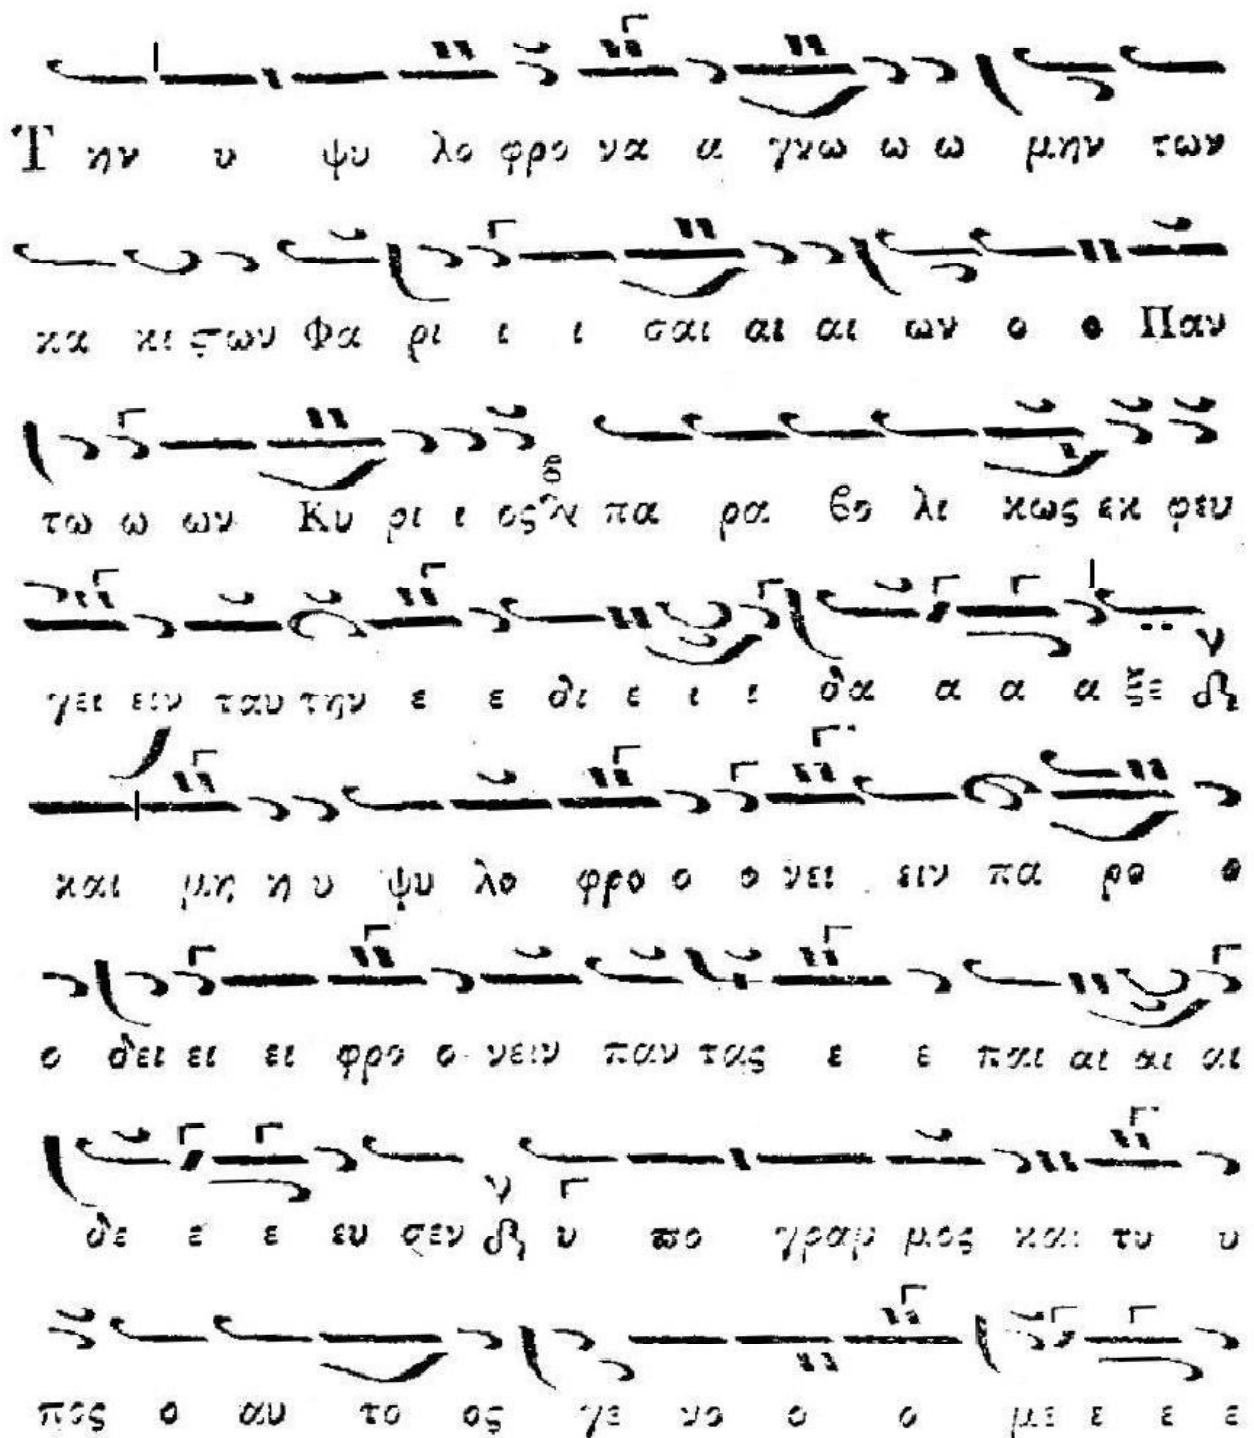 Την υ ψυ λο φρο να α γνω ω ω μην των
κα κι ϛων Φα ρι ι ι σαι αι αι ων ο ο Παν
τω ω ων Κυ ρι ι ος πα ρα βο λι κως εκ φευ
γει ειν ταυ την ε ε δι ι ι ι δα α α α ξε
και μη η υ ψυ λο φρο ο ο νει ειν πα ρο ο
ο δει ει ει φρο ο νειν παν τας ε ε παι αι αι αι
δε ε ε ευ σεν υ πο γραμ μος και τυ υ
πος ο αυ το ος γε νο ο ο με ε ε ε